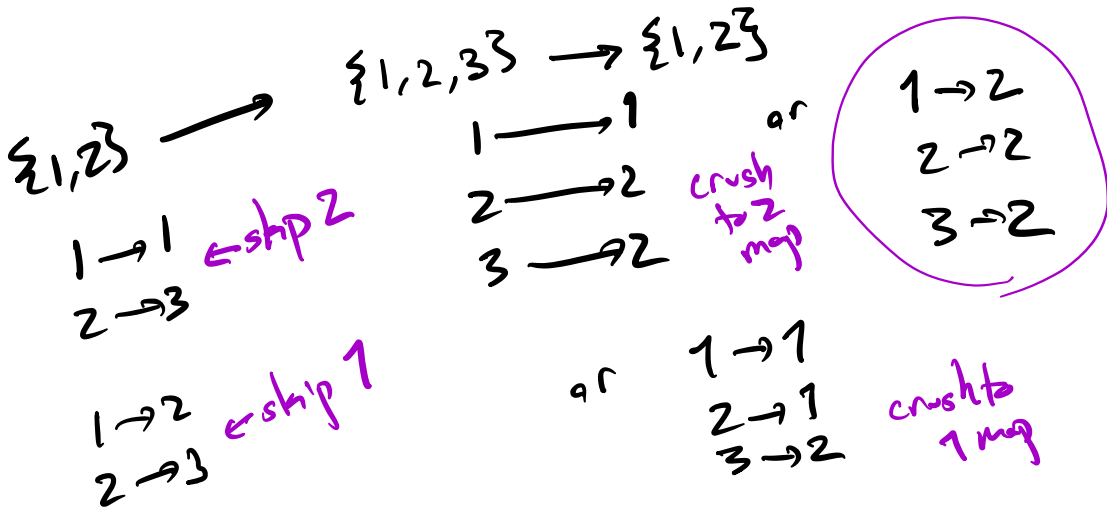 {1,2} ⟶ {1,2,3} ⟶ {1,2}
1 → 1 ← skip 2
2 → 3
1 → 2 ← skip 1
2 → 3
1 → 1
2 → 2
3 → 2
crush
to 2
map
or
1 → 2
2 → 2
3 → 2
or
1 → 1
2 → 1
3 → 2
crush to
1 map